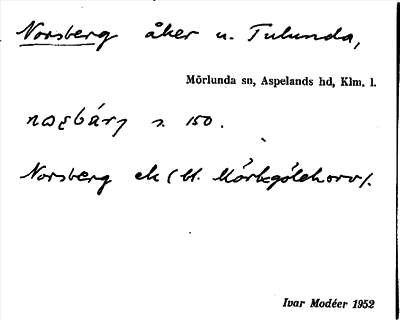 Norsberg åker u. Tulunda,
Mörlunda sn, Aspelands hd, Klm. l.
s. 150.
Norsberg ek (U.
Ivar Modéer 1952